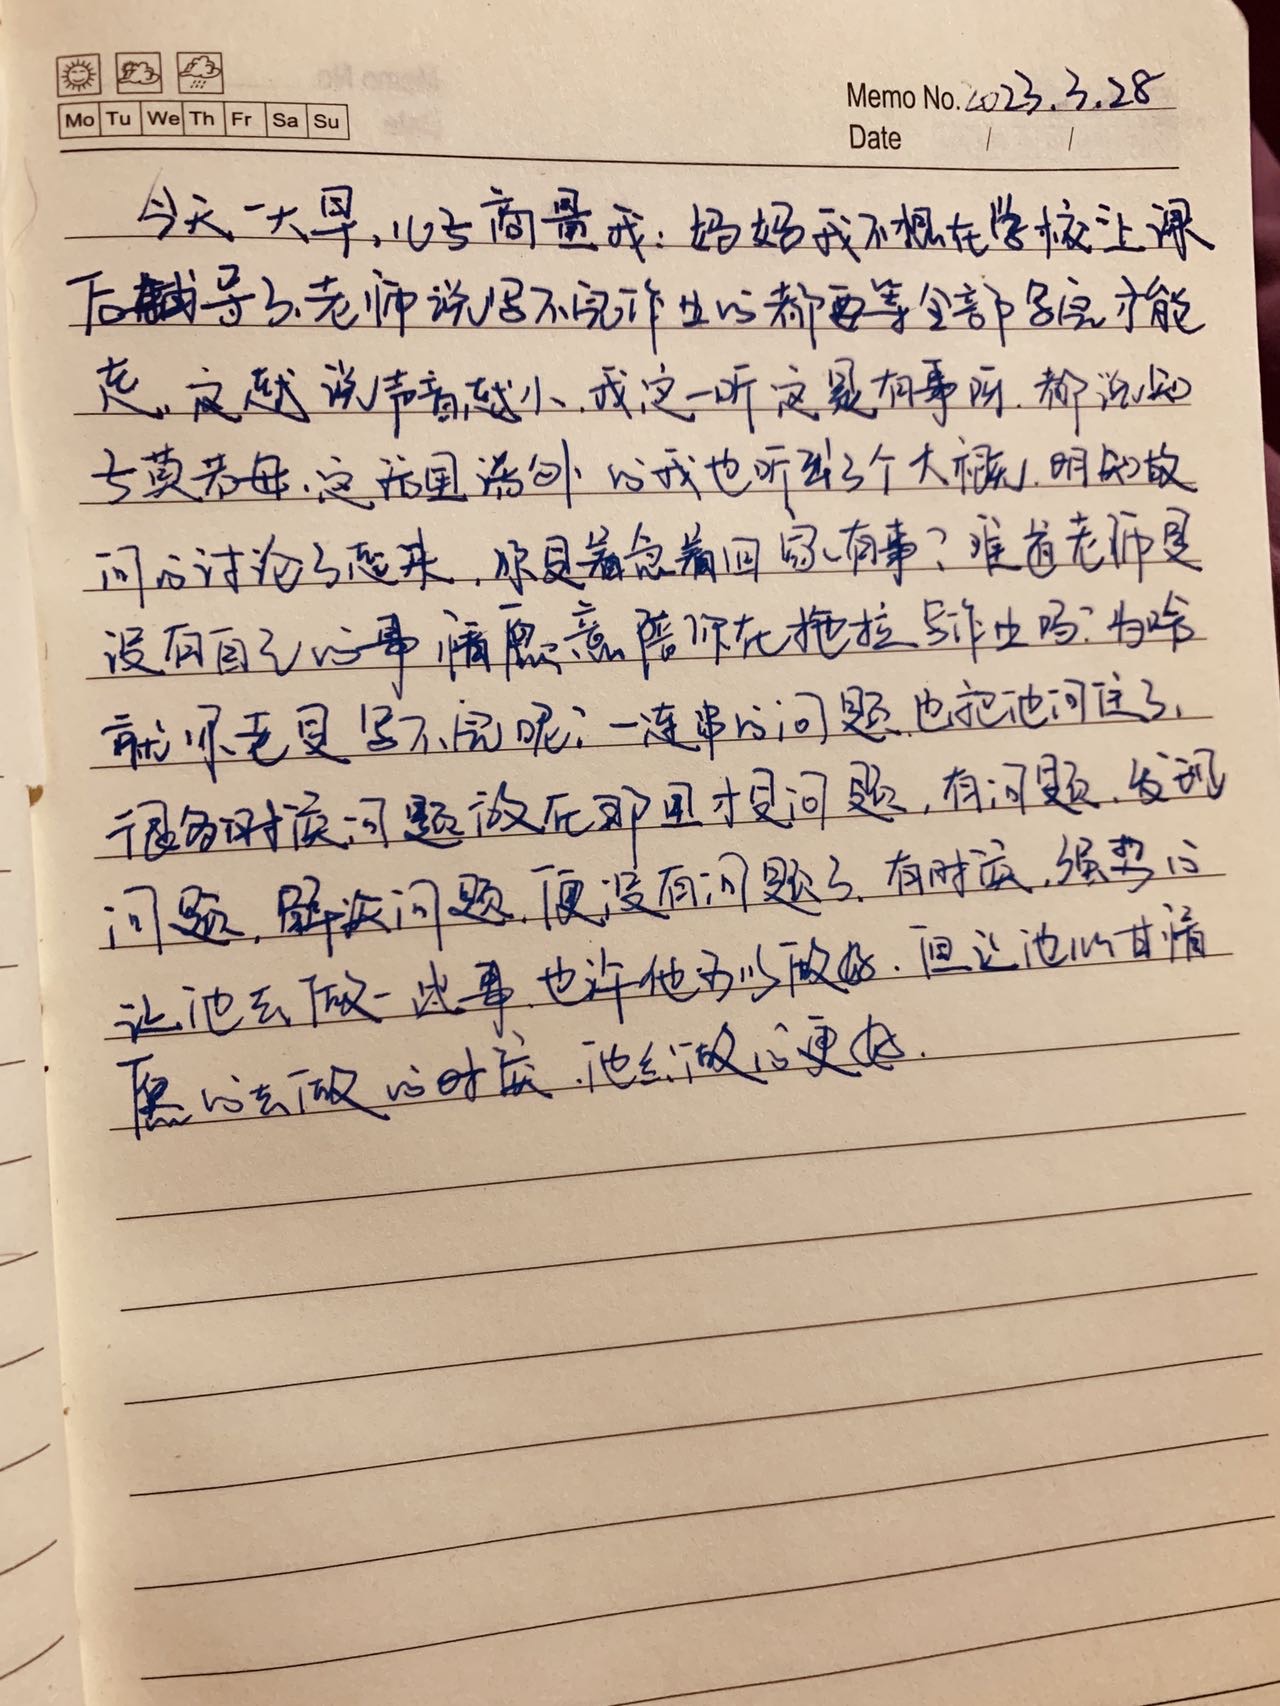 Memo No. 2023.3.28
Mo Tu We Th Fr Sa Su
Date / /
今天一大早,儿子商量我:妈妈我不想在学校上课
后辅导了,老师说写不完作业的都要等全部写完才能
走,这越说声音越小,我这一听这是有事啊,都说知
子莫若母,这话里话外的我也听到了个大概,明知故
问的讨论了起来,你是着急着回家有事?难道老师是
没有自己的事情愿意陪你在拖拉写作业吗?为啥
就你老是写不完呢?一连串的问题,也把他问住了,
很多时候问题放在那里才是问题,有问题,发现
问题,解决问题,便没有问题了,有时候,强势的
让他去做一些事,也许他可以做好,但让他心甘情
愿的去做的时候,他会做的更好.